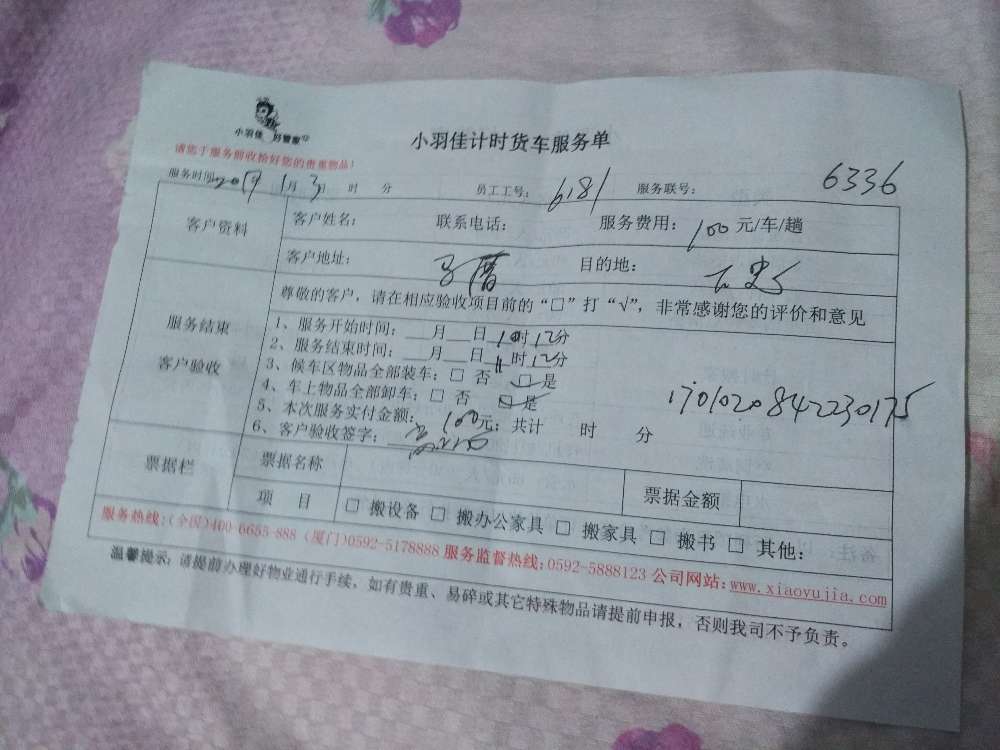 小羽佳 好管家
小羽佳计时货车服务单
请您于服务前收拾好您的贵重物品！
服务时间 1月3日 时 分 员工工号：6181 服务联号：6336
客户资料 客户姓名： 联系电话： 服务费用：100元/车/趟
客户地址： 目的地：
尊敬的客户，请在相应验收项目前的“□”打“√”，非常感谢您的评价和意见
服务结束
客户验收
1、服务开始时间：__月__日10时12分
2、服务结束时间：__月__日11时12分
3、候车区物品全部装车：□ 否 □ 是
4、车上物品全部卸车：□ 否 □ 是
5、本次服务实付金额：100元；共计 时 分
1701020842230175
6、客户验收签字：
票据栏 票据名称 票据金额
项 目 □ 搬设备 □ 搬办公家具 □ 搬家具 □ 搬书 □ 其他：
服务热线：(全国)400-6655-888 (厦门)0592-5178888 服务监督热线：0592-5888123 公司网站：www.xiaoyujia.com
温馨提示：请提前办理好物业通行手续，如有贵重、易碎或其它特殊物品请提前申报，否则我司不予负责。